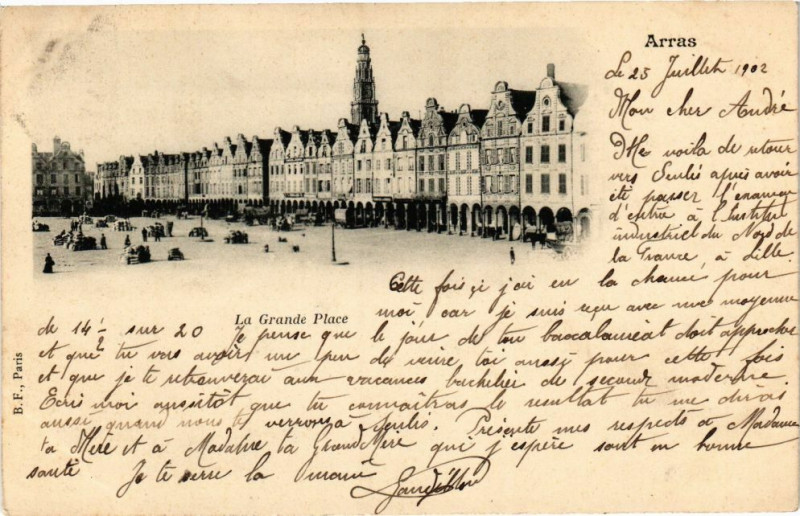 Arras
Le 25 Juillet 1902
Mon cher André
Me voila de retour
vers Senlis après avoir
été passer l'examen
d'entrée à l'Institut
industriel du Nord de
la France, à Lille.
Cette fois ci j'ai eu la chance pour
moi car je suis reçu avec une moyenne
La Grande Place
de 14 1/2 sur 20 Je pense que le jour de ton baccalauréat doit approcher
et que tu vas avoir un peu de veine toi aussi pour cette fois
et que je te retrouverai aux vacances bachelier de seconde moderne.
Ecris moi aussitôt que tu connaîtras le resultat tu me diras
aussi quand nous te verrons à Senlis. Présente mes respects à Madame
ta Mère et à Madame ta Grand Mère qui j'espère sont en bonne
santé Je te serre la main
B. F., Paris